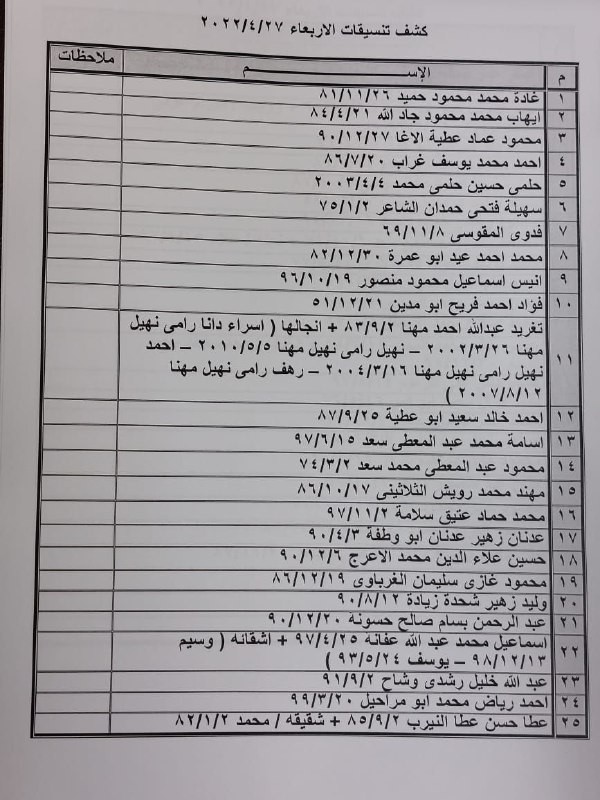 كشف تنسيقات الاربعاء ٢٠٢٢/٤/٢٧
م الإســـــــــــــم ملاحظات
١ غادة محمد محمود حميد ٨١/١١/٢٦
٢ ايهاب محمد محمود جاد الله ٨٤/٤/٢١
٣ محمود عماد عطية الاغا ٩٠/١٢/٢٧
٤ احمد محمد يوسف غراب ٨٦/٧/٢٠
٥ حلمى حسين حلمى محمد ٢٠٠٣/٤/٤
٦ سهيلة فتحى حمدان الشاعر ٧٥/١/٢
٧ فدوى المقوسى ٦٩/١١/٨
٨ محمد احمد عيد ابو عمرة ٨٢/١٢/٣٠
٩ انيس اسماعيل محمود منصور ٩٦/١٠/١٩
١٠ فؤاد احمد فريح ابو مدين ٥١/١٢/٢١
١١ تغريد عبدالله احمد مهنا ٨٣/٩/٢ + انجالها ( اسراء دانا رامى نهيل
مهنا ٢٠٠٢/٣/٢٦ – نهيل رامى نهيل مهنا ٢٠١٠/٥/٥ – احمد
نهيل رامى نهيل مهنا ٢٠٠٤/٣/١٦ – رهف رامى نهيل مهنا
٢٠٠٧/٨/١٢ )
١٢ احمد خالد سعيد ابو عطية ٨٧/٩/٢٥
١٣ اسامة محمد عبد المعطى سعد ٩٧/٦/١٥
١٤ محمود عبد المعطى محمد سعد ٧٤/٣/٢
١٥ مهند محمد رويش الثلاثينى ٨٦/١٠/١٧
١٦ محمد حماد عتيق سلامة ٩٧/١١/٢
١٧ عدنان زهير عدنان ابو وطفة ٩٠/٤/٣
١٨ حسين علاء الدين محمد الاعرج ٩٠/١٢/٦
١٩ محمود غازى سليمان الغرباوى ٨٦/١٢/١٩
٢٠ وليد زهير شحدة زيادة ٩٠/٨/١٢
٢١ عبد الرحمن بسام صالح حسونه ٩٠/١٢/٢٠
٢٢ اسماعيل محمد عبد الله عفانه ٩٧/٤/٢٥ + اشقائه ( وسيم
٩٨/١٢/١٣ – يوسف ٩٣/٥/٢٤ )
٢٣ عبد الله خليل رشدى وشاح ٩١/٩/٢
٢٤ احمد رياض محمد ابو مراحيل ٩٩/٣/٢٠
٢٥ عطا حسن عطا النيرب ٨٥/٩/٢ + شقيقه / محمد ٨٢/١/٢